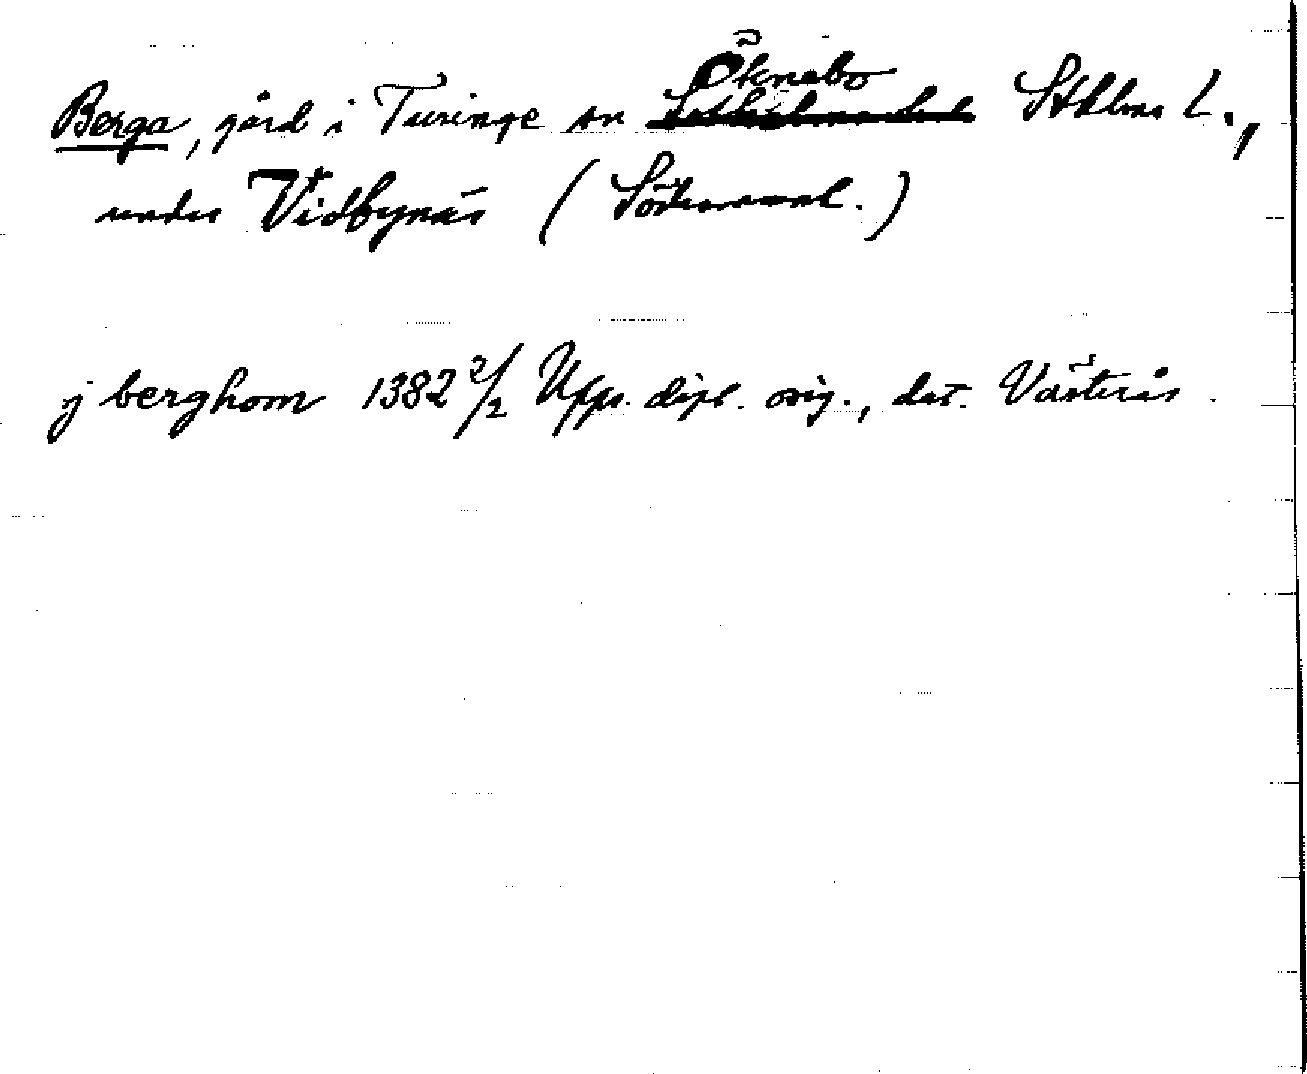 Berga, gård i Turinge sn Öknebo Sthlms l.,
under Vidbynäs (Södermanl.)
j berghom 1382 2/2 Upps. dipl. orig., dat. Västerås.